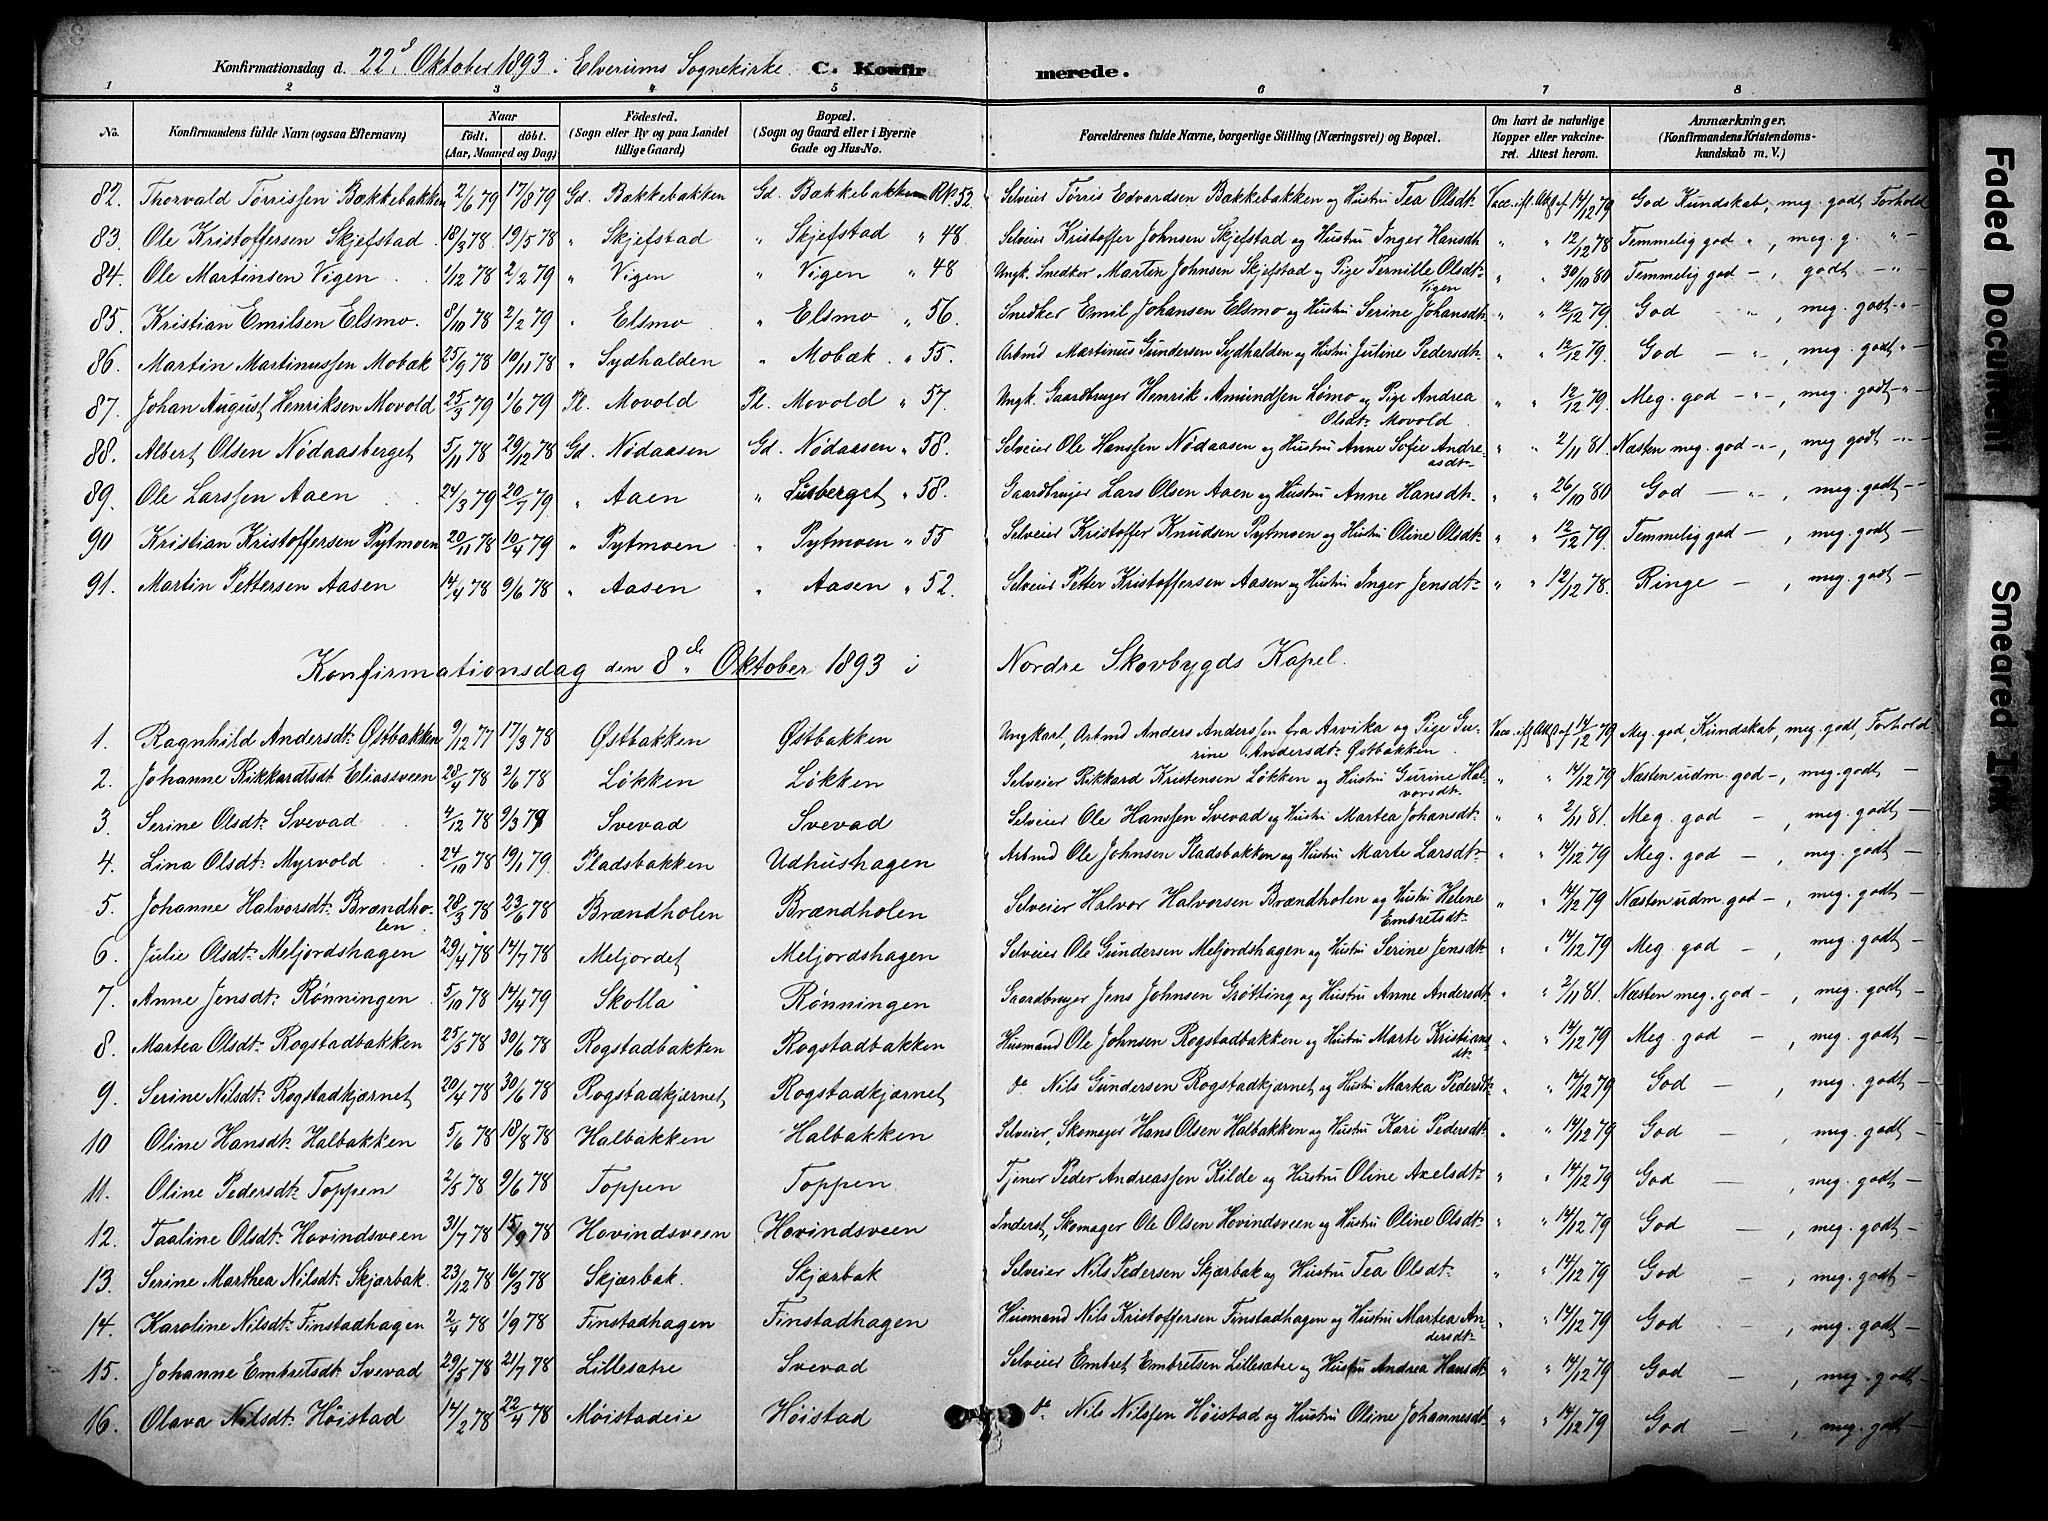 Konfirmationsdag d. 22. Oktober 1893 i Elverums Sognekirke. C. Konfirmerede.
1 2 3 4 5 6 7 8
No. Konfirmandens fulde Navn (ogsaa Efternavn) Naar födt. döbt. (Aar, Maaned og Dag) Födested. (Sogn eller By og paa Landet tillige Gaard) Bopæl. (Sogn og Gaard eller i Byerne Gade og Hus-No. Forældrenes fulde Navne, borgerlige Stilling (Næringsvei) og Bopæl. Om havt de naturlige Kopper eller vakcineret. Attest herom. Anmærkninger. (Konfirmandens Kristendomskundskab m. V.)
82. Thorvald Tørrissen Bækkebakken 2/6 79 17/8 79 Gd. Bækkebakken Gd. Bækkebakken 52. Selveier Tørris Edvardsen Bækkebakken og Hustru Tea Olsdt. Vacc. ifl. Att. af 14/12 79 God Kundskab, meg. godt Forhold
83. Ole Kristoffersen Skjefstad 18/3 78 19/5 78 " Skjefstad " Skjefstad " 48 Selveier Kristoffer Johnsen Skjefstad og Hustru Inger Hansdt. " " 12/12 78 Temmelig god " , meg. g. " -
84. Ole Martinsen Vigen 1/12 78 2/2 79 " Vigen " Vigen " 48 Ungk. Snedker Martin Johnsen Skjefstad og Pige Pernille Olsdt. Vigen " " 30/10 80 Temmelig god - , godt - "
85. Kristian Emilsen Elsmo. 8/10 78 2/2 79 " Elsmo " Elsmo " 56. Snedker Emil Johansen Elsmo og Hustru Serine Johansdt. " " 12/12 79. God - " , meg. godt - " -
86. Martin Martinussen Mobæk 25/9 78 10/11 78 " Sydhalden " Mobæk. " 55. Arbmd Martinus Gundersen Sydhalden og Hustru Juline Pedersdt. " " 12/12 79. God - " - , meg. godt " -
87. Johan August Henriksen Movold 25/3 79 1/6 79 Pl. Movold Pl. Movold " 57. Ungk. Gaardbruger Henrik Amundsen Lømo og Pige Andrea Olsdt. Movold " " 12/12 79. Meg. god - " - , meg. godt - " -
88. Albert Olsen Nødaasberget 5/11 78 29/12 78 Gd. Nødaasen Gd. Nødaasen " 58. Selveier Ole Hanssen Nødaasen og Hustru Anne Sofie Andreasdt. " " 2/11 81. Næsten meg. god - " - , meg godt " -
89. Ole Larssen Aaen 24/3 79 20/7 79. " Aaen " Lisberget " 58. Gaardbruger Lars Olsen Aaen og Hustru Anne Hansdt. " " 26/10 80 God - " - , meg. godt -
90 Kristian Kristoffersen Pytmoen 20/11 78 10/4 79 " Pytmoen " Pytmoen " 55 Selveier Kristoffer Knudsen Pytmoen og Hustru Oline Olsdt. " " 12/12 79. Temmelig god - , meg. godt -
91. Martin Pettersen Aasen 14/4 78 9/6 78 " Aasen " Aasen " 52. Selveier Petter Kristoffersen Aasen og Hustru Inger Jensdt. " " 12/12 78. Ringe - , meg. godt -
Konfirmationsdag den 8de Oktober 1893 i Nordre Skovbygds Kapel.
1. Ragnhild Andersdt. Østbakken 9/12 77 17/3 78 Østbakken Østbakken Ungkarl, Arbmd Anders Anderssen fra Arvika og Pige Gurine Andersdt. Østbakken Vacc. ifl. Att. af 14/12 79 Meg. god, Kundskab, meg. godt, Forhold
2. Johanne Rikkardtsdt Eliassveen 28/4 78 2/6 78 Løkken Løkken Selveier Rikkard Kristensen Løkken og Hustru Gurine Halvorsdt. " " 14/12 79 Næsten udm. god -, meg. godt -
3. Serine Olsdt. Svevad 4/12 78 9/3 79 Svevad Svevad Selveier Ole Hanssen Svevad og Hustru Martea Johansdt. " " 2/11 81. Meg. god - , meg. godt -
4. Lina Olsdt. Myrvold 24/10 78 19/1 79. Pladsbakken Udhushagen Arbmd Ole Johnsen Pladsbakken og Hustru Marte Larsdt. " " 14/12 79 Meg. god - , meg. godt -
5. Johanne Halvorsdt. Brændholen 28/3 78 23/6 78 Brændholen Brændholen Selveier Halvor Halvorsen Brændholen og Hustru Helene Embretsdt. " " 14/12 79 Næsten udm. god - , meg. godt -
6. Julie Olsdt. Meljordshagen 29/4 78 14/7 78 Meljordet Meljordshagen Selveier Ole Gundersen Meljordshagen og Hustru Serine Jensdt. " " 14/12 79 Meg. god - , meg. godt -
7. Anne Jensdt. Rønningen 5/10 78 14/4 79 Skolla Rønningen Gaardbruger Jens Johnsen Grøtting og Hustru Anne Andersdt. " " 2/11 81. Næsten meg. god - , meg. godt -
8. Martea Olsdt. Rogstadbakken 25/5 78 30/6 78 Rogstadbakken Rogstadbakken Husmand Ole Johnsen Rogstadbakken og Hustru Marte Kristiansdt. " " 14/12 79 Meg. god - , meg. godt -
9. Serine Nilsdt. Rogstadkjærnet 20/4 78 30/6 78 Rogstadkjærnet Rogstadkjærnet do Nils Gundersen Rogstadkjærnet og Hustru Marka Pedersdt. " " 14/12 79 God - , meg. godt -
10 Oline Hansdt. Halbakken 5/6 78 18/8 78 Halbakken Halbakken Selveier, Skomager Hans Olsen Halbakken og Hustru Kari Pedersdt. " " 14/12 79 God - , meg. godt -
11. Oline Pedersdt. Toppen 2/5 78 9/6 78 Toppen Toppen Tjener Peder Andreassen Kilde og Hustru Oline Axelsdt. " " 14/12 79 God - , meg. godt -
12. Taaline Olsdt. Hovindsveen 31/7 78 15/9 78 Hovindsveen Hovindsveen Inderst, Skomager Ole Olsen Hovindsveen og Hustru Oline Olsdt. " " 14/12 79 God - , meg. godt -
13. Serine Marthea Nilsdt. Skjærbak. 23/12 78 16/3 78 Skjærbak. Skjærbak Selveier Nils Pedersen Skjærbak og Hustru Tea Olsdt. " " 14/12 79 God - , meg. godt -
14. Karoline Nilsdt. Finstadhagen 2/4 78 1/9 78 Finstadhagen Finstadhagen Husmand Nils Kristoffersen Finstadhagen og Hustru Martea Andersdt. " " 14/12 79 God - , meg. godt -
15. Johanne Embretsdt. Svevad 29/5 78 21/7 78 Lillesætre Svevad Selveier Embret Embretsen Lillesætre og Hustru Andrea Hansdt. " " 14/12 79 God - , meg. godt -
16. Olava Nilsdt. Høistad 14/2 78 22/4 78 Møistadeie Høistad do Nils Nilssen Høistad og Hustru Oline Johannesdt. " " 14/12 79 God - , meg. godt -
Faded Document
Smeared Ink